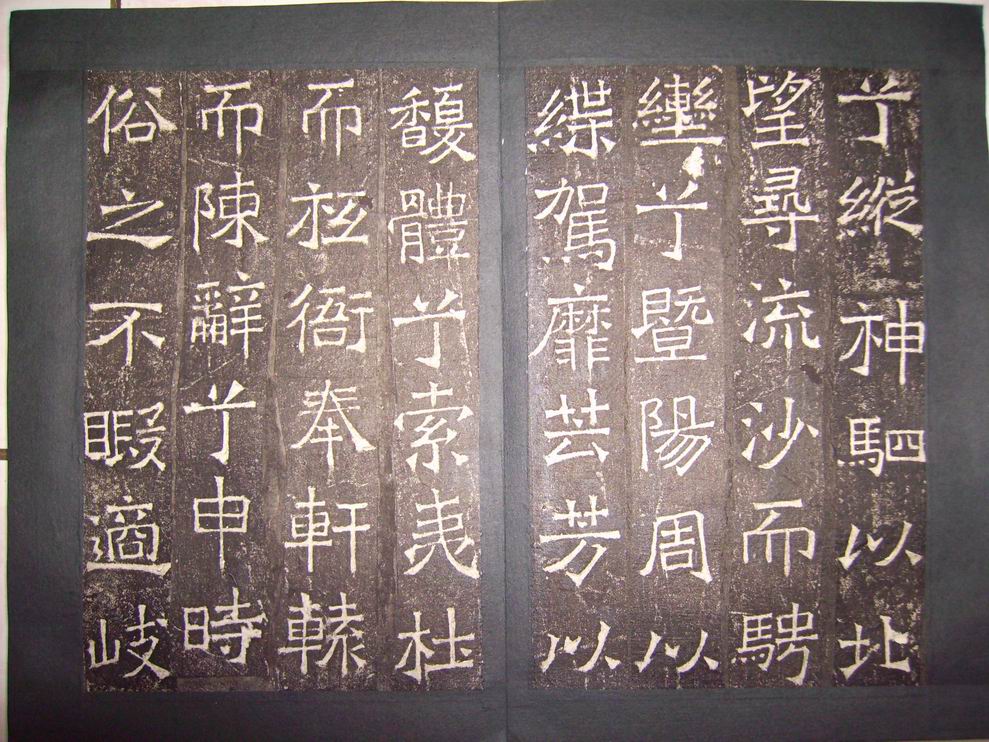 兮縱神駟以北
望尋流沙而騁
轡兮暨陽周以
緤駕靡芸芳以
馥體兮索夷杜
而袨衙奉軒轅
而陳辭兮申時
俗之不睱適岐